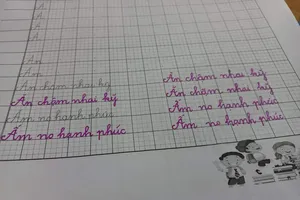 Ăn
Ăn
Ăn chậm nhai kỹ
Ăn chậm nhai kỹ
Ấm no hạnh phúc
Ấm no hạnh phúc
Ăn chậm nhai kỹ
Ăn chậm nhai kỹ
Ấm no hạnh phúc
Ấm no hạnh phúc